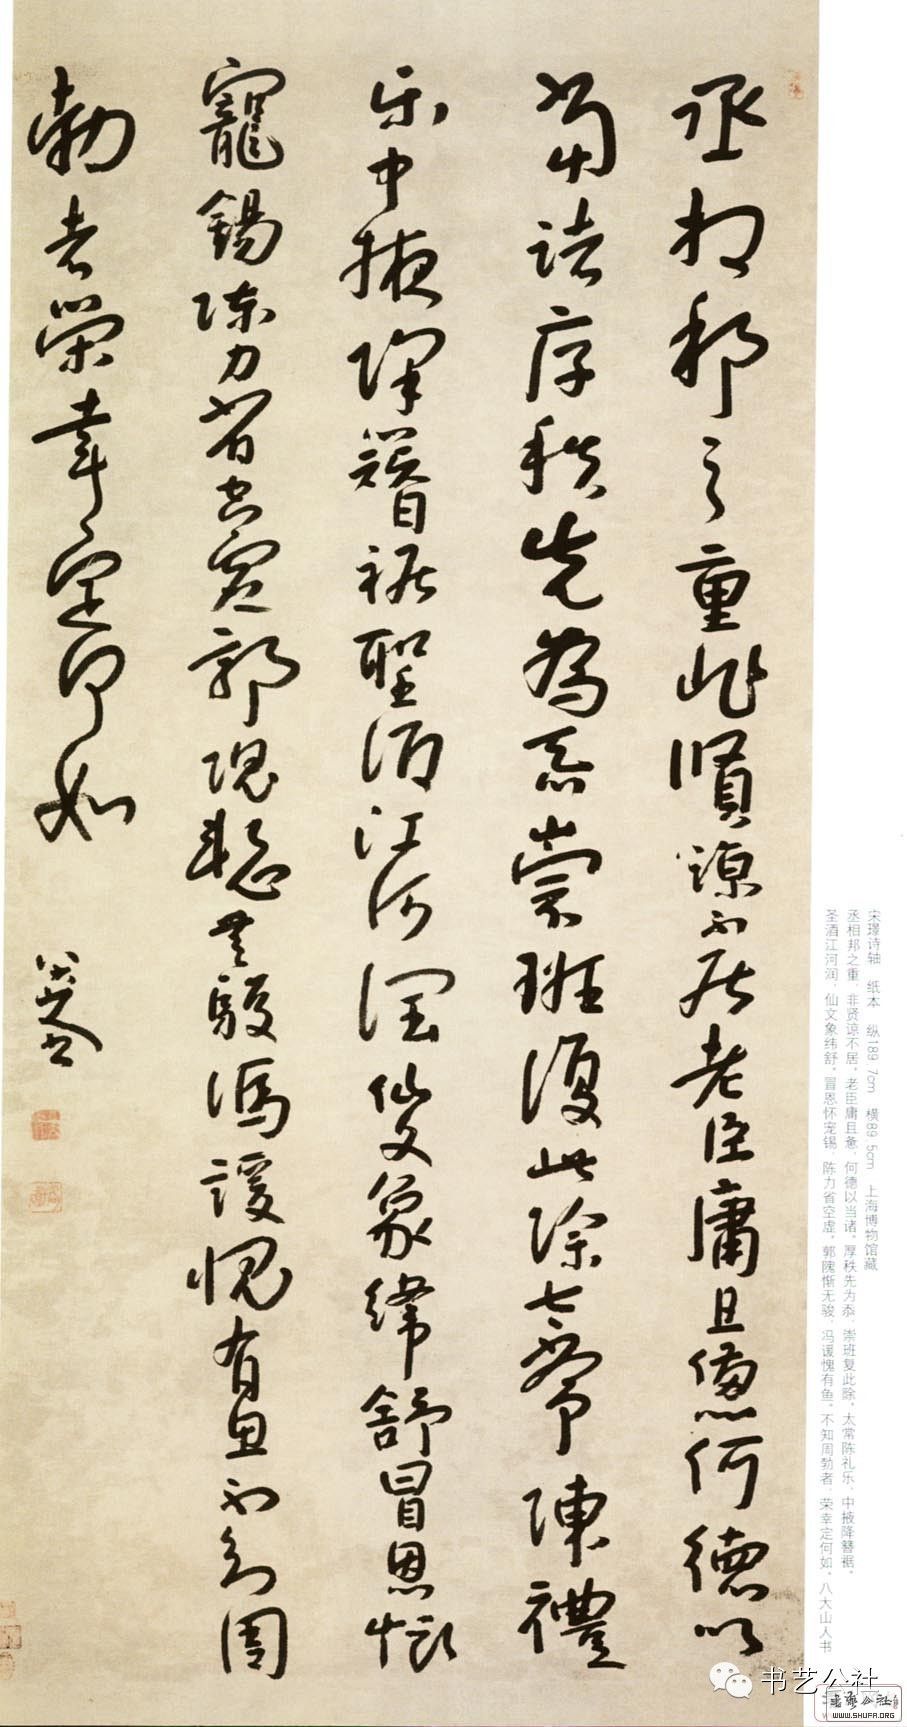 宋璟诗轴 纸本 纵189 7cm 横89 5cm 上海博物馆藏
丞相邦之重，非贤谅不居，老臣庸且惫，何德以当诸，厚秩先为忝，崇班复此除，太常陈礼乐，中掖降簪裾，
圣酒江河润，仙文象纬舒，冒恩怀宠锡，陈力省空虚，郭隗惭无骏，冯谖愧有鱼，不知周勃者，荣幸定何如，八大山人书
丞相邦之重非賢諒不居老臣庸且憊何德以
當諸厚秩先為忝崇班復此除太常陳禮
樂中掖降簪裾聖酒江河潤仙文象緯舒冒恩懷
寵錫陳力省空虛郭隗慙無駿馮諼愧有魚不知周
勃者榮幸定何如 八大山人
书艺公社
書藝公社
WWW.SHUFA.ORG